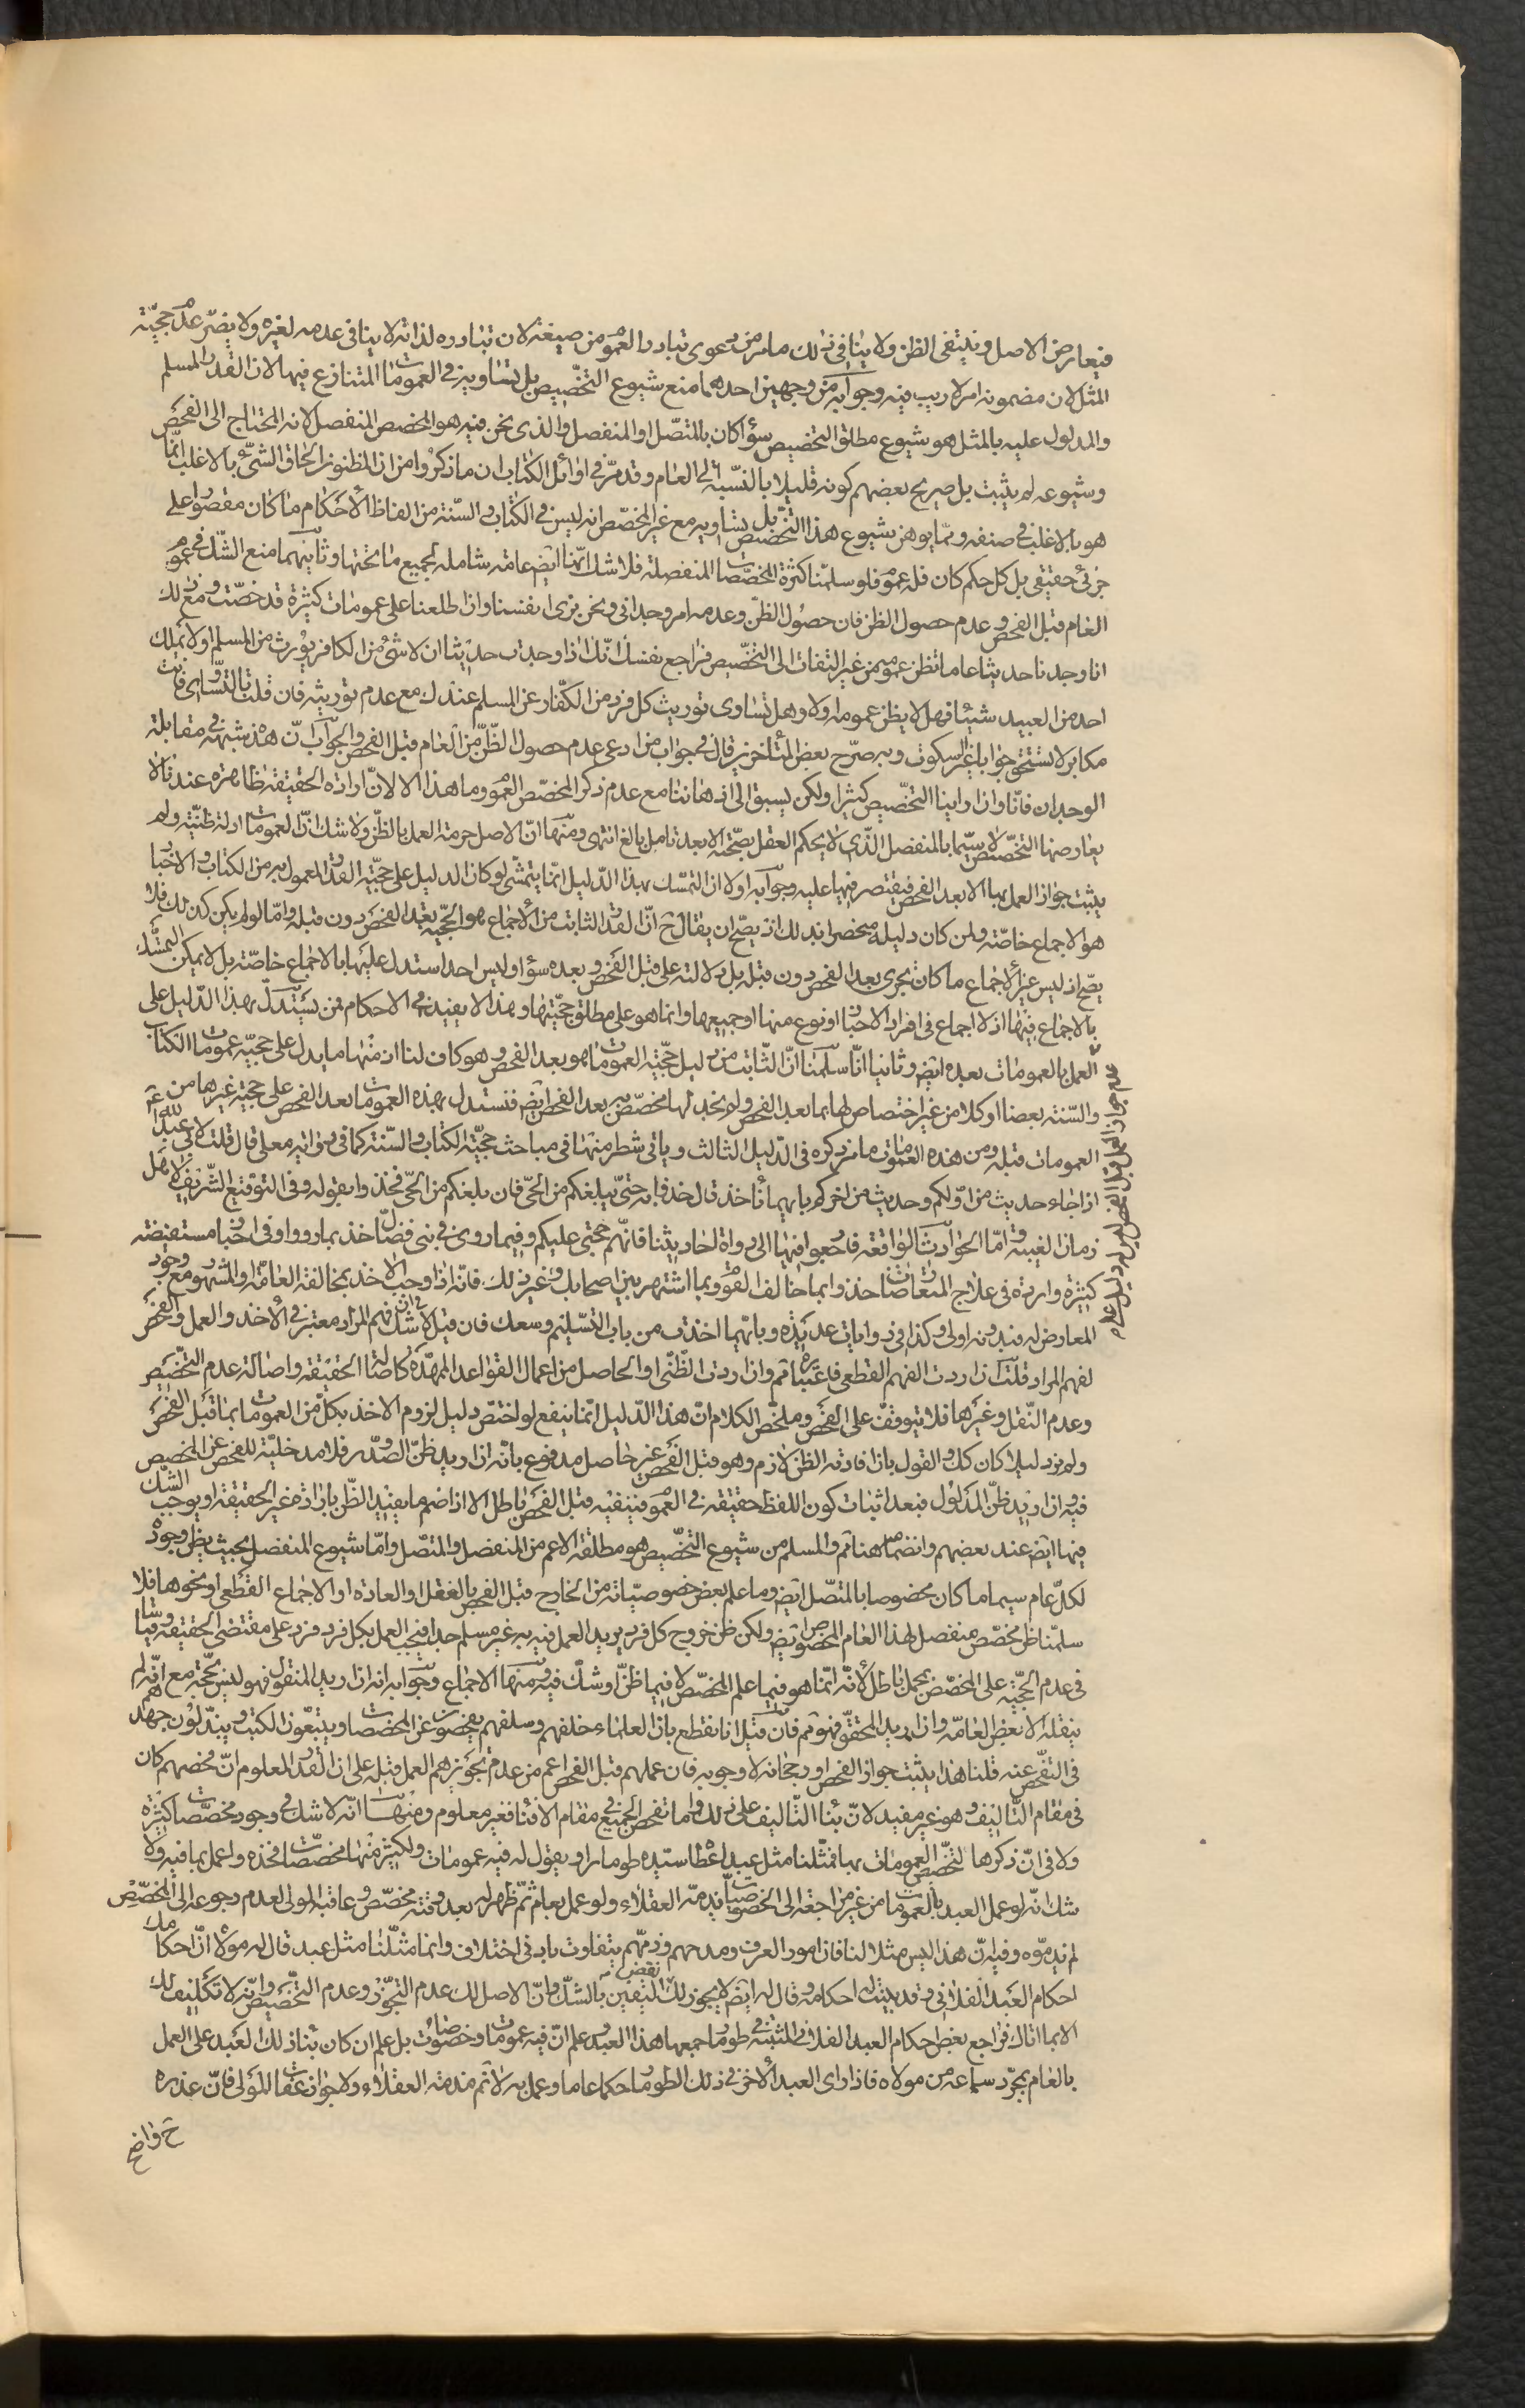 فيعارض الاصل وينتفى الظن ولا ينافى ذلك ما مر من دعوى تبادر العموم من صيغة لان تبادره لذاته لا ينافى عدمه لغيره ولا يضر عدم حجيّة
المثل لان مضمونه امر لا ريب فيه وجوابه من وجهين احدهما منع شيوع التخصيص بل تساويه فى العمومات المتنازع فيها لان القدر المسلم
والمدلول عليه بالمثل هو شيوع مطلق التخصيص سواء كان بالمتّصل او المنفصل والذى نحن فيه هو المخصص المنفصل لانه المحتاج الى الفحص
وشيوعه لم يثبت بل صريح بعضهم كونه قليلا بالنّسبة الى العام وقد مرّ فى اوائل الكتاب ان ما ذكروا من ان المظنون الحاق الشئ بالاغلب انّما
هو بالاغلب فى صنفه وممّا يوهن شيوع هذا التخصيص بل تساويه مع غير المخصّص انه ليس فى الكتاب والسّنة من الفاظ الأحكام ما كان مقصورا على
جزئى حقيقى بل كل حكم كان فله عموم فلو سلمّنا كثرة المخصّصات المنفصلة فلا شك انّها ايض عامة شاملة لجميع ما تحتها وثانيهما منع الشّك فى عموم
العام قبل الفحص وعدم حصول الظن فان حصول الظنّ وعدمه امر وجدانى ونحن نرى انفسنا وان اطلعنا على عمومات كثيرة قد خصّت ومع ذلك
انا وجدنا حديثا عاما نظن عمومه من غير التفات الى التخصّيص فراجع نفسك انّك اذا وجدت حديثا ان لا شئ من الكافر يورث من المسلم او لا يملك
احد من العبيد شيئا فهل لا يظن عمومه اولا وهل تساوى توريث كل فرد من الكفّار عن المسلم عندك مع عدم توريثه فان قلت بالتساوى فانت
مكابر لا تستحق جوابا غير السكوت وبه صرّح بعض المتأخرين قال فى جواب من ادعى عدم حصول الظّنّ من العام قبل الفحص والجواب انّ هذه شبهة فى مقابلة
الوجدان فانّا وان راينا التخصّيص كثيرا ولكن يسبق الى اذهاننا مع عدم ذكر المخصّص العموم وما هذا الا لانّ ارادة الحقيقة ظاهرة عندنا لا
يعارضها التخصّيص لا سيّما بالمنفصل الذّى لا يحكم العقل بصحّته الا بعد تامل بالغ انتهى ومنها انّ الاصل حرمة العمل بالظنّ ولا شك انّ العمومات ادلة ظنيّة ولم
يثبت جواز العمل بها الا بعد الفحص فيقتصر فيها عليه وجوابه اولا ان التمسّك بهذا الدّليل انّما يتمشّى لو كان الدليل على حجيّة القدر المعمول به من الكتاب والاخبار
هو الاجماع خاصّة ولن كان دليله منحصرا بذلك اذ يصحّ ان يقال ح انّ القدر الثابت من الأجماع هو الحجّية بعد الفحص دون قبله وامّا لو لم يكن كذلك فلا
يصّح اذ ليس غير الأجماع ما كان يجرى بعد الفحص دون قبله بل دلالته على قبل الفحص وبعده سواء وليس احدا استدل عليها بالاجماع خاصّة بل لا يمكن التمسّك
بالاجماع فيها اذ لا اجماع فى افراد الاخبار او نوع منها او جميعها وانما هو على مطلق حجّيتها وهذا لا يفيد فى الاحكام فمن يستدلّ بهذا الدّليل على
العمل بالعمومات بعده ايض وثانيا انّا سلّمنا انّ الثّابت من دليل حجّية العمومات ما هو بعد الفحص وهو كاف لنا ان منها ما يدل على حجيّة عمومات الكتاب
والسّنة بعضا او كلا من غير اختصاص لها بما بعد الفحص ولم نجد لها مخصّص به بعد الفحص ايض فنستدل بهذه العمومات بعد الفحص على حجية غيرها من
العمومات قبله ومن هذه العمومات ما مر ذكره فى الدّليل الثالث وياتى شطر منها فى مباحث حجيّة الكتاب والسّنة كما فى رواية معلى قال قلت لابى عبد الله ع
اذا جاء حديث من اوّلكم وحديث من اخركم بايهما نأخذ قال خذوا به حتىّ يبلغكم من الحىّ فان بلغكم من الحىّ فخذوا بقوله وفى التوقيع الشّريف لاهل
زمان الغيبة وامّا الحوادث الواقعة فارجعوا فيها الى رواة احاديثنا فانّهم حجتى عليكم وفيما روى فى بنى فضّال خذ بما رووا وفى اخبار مستفيضة
كثيرة واردة فى علاج المتعارضات خذوا بما خالف القوم وبما اشتهر بين اصحابك وغير ذلك فانّه اذا وجب الاخذ بمخالفة العامّة او المشهور مع وجود
المعارض له فبدونه اولى وكذا فى روايات عديدة وبايّهما اخذت من باب التسّليم وسعك فان قيل لا شك ان فهم المراد معتبر فى الأخذ والعمل والفحص
لفهم المراد قلت ان اردت الفهم القطعى فاعتباره ثم وان اردت الظّنّى او الحاصل من اعمال القواعد الممهّدة كاصالة الحقيقة واصالة عدم التخّصيص
وعدم النّقل وغيرها فلا يتوقف على الفحص وملخّص الكلام انّ هذا الدّليل انّما ينفع لو اختصّ دليل لزوم الاخذ بكلّ من العمومات بما قبل الفحص
ولم نرد ليلا كان كك والقول بان افادته الظن لازم وهو قبل الفحص غير حاصل مدفوع بانّه ان اريد ظنّ الصّدور فلا مدخليّة للفحص عن المخصص
فيه وان اريد ظنّ المدلول فبعد اثبات كون اللفظ حقيقة فى العموم فنفيه قبل الفحص باطل الا اذا ضم ما يفيد الظّن بارادة غير الحقيقة او يوجب الشّك
فيها ايض عند بعضهم وانضمامه هنا ثم والمسلم من شيوع التخّصيص هو مطلقه الاعم من المنفصل والمتصّل وامّا شيوع المنفصل بحيث يظن وجوده
لكلّ عام سيما ما كان مخصوصا بالمتصّل ايض وما علم بعض خصوصيّاته من الخارج قبل الفحص بالعقل او العادة او الاجماع القطعى او نحوها فلا
سلمّنا ظن مخصّص منفصل لهذا العام المخصوص ايض ولكن ظن خروج كل فرد يريد العمل فيه به غير مسلم جدا فيجب العمل بكل فرد فرد على مقتضى الحقيقة
فى عدم الحجّية على المخصّص بمجمل باطل لأنّه انّما هو فيما علم المخصّص لا فيما ظنّ او شكّ فيه ومنها الاجماع وجوابه انه ان اريد المنقول فهو ليس بحجّة مع انّه لم
ينقله الا بعض العامّة وان اريد المحقّق فهو ثم فان قيل انا نقطع بان العلماء خلفهم وسلفهم يفحصون عن المخصّصات ويتبعون الكتب ويبذلون جهدهم
فى التفّحص عنه قلنا هذا يثبت جواز الفحص او رجحانه لا وجوبه فان عملهم قبل الفحص اعم من عدم تجويزهم العمل قبله على ان القدر المعلوم انّ فحصهم كان
فى مقام التّاليف وهو غير مفيد لانّ بناء التّاليف على ذلك واما تفحص الجميع فى مقام الافتاء فغير معلوم ومنها انّه لا شك فى وجود مخصّصات كثيرة
ولا فى انّ ذكرها لتخصّيص العمومات بها فمثلنا مثل عبد اعطاه سيّده طومارا ويقول له فيه عمومات ولكثير منها مخصّصات فخذه واعمل بما فيه ولا
شك انّه لو عمل العبد بالعمومات من غير مراجعة الى الخصوصيّات يذمّه العقلاء ولو عمل بعام ثمّ ظهر له بعد وقته مخصّص وعاقبه المولى لعدم رجوعه الى المخصّص
لم يذمّوه وفيه انّ هذا ليس مثلا لنا فان امور العرف ومدحهم وذمّهم يتفاوت بادنى اختلاف وانما مثّلنا مثل عبد قال له مولاه انّ احكامك
احكام العبد الفلانى وقد بيّنت له احكامه وقال له ايض لا يجوز لك نقض اليقين بالشّك وانّ الاصل لك عدم التجّوز وعدم التخّصيص وانّه لا تكليف لك
الا بما اتاك فراجع بعض احكام العبد الفلانى المثبتة فى طومار جمعها هذا العبد وعلم انّ فيه عمومات وخصوصات بل علم ان كان بناء ذلك العبد على العمل
بالعام بمجرّد سماعه من مولاه فاذا راى العبد الأخر فى ذلك الطومار حكما عاما وعمل به لا ثم مذمة العقلاء ولا جواز عقاب المولى فانّ عذره
ح واضح